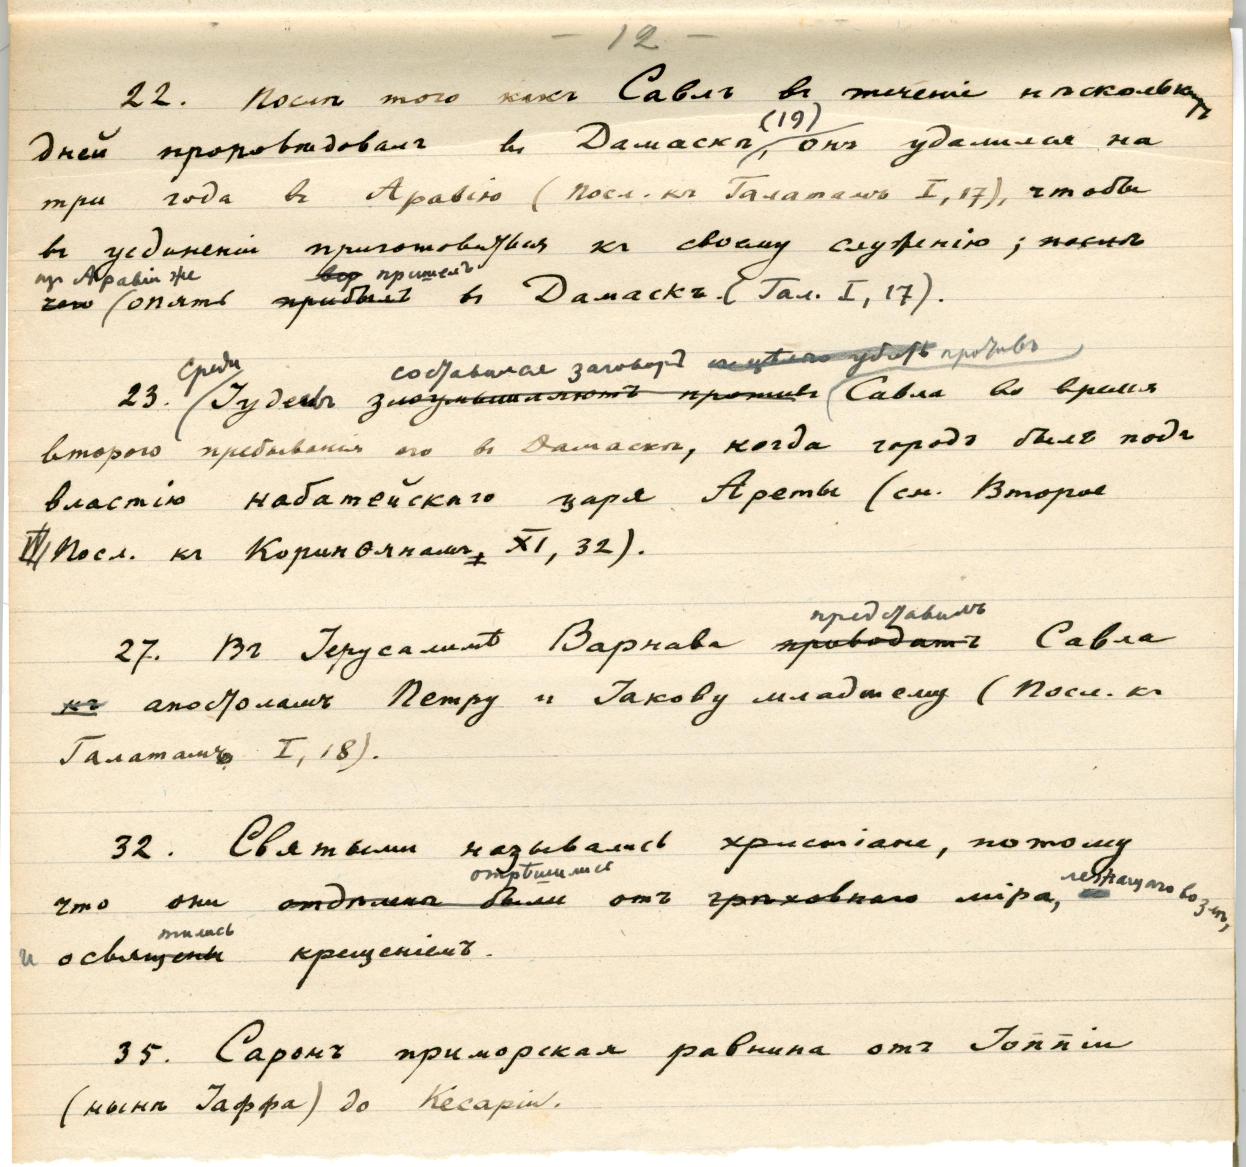 — 12 —
22. Послѣ того какъ Савлъ въ теченіе нѣсколькихъ
(19)
дней проповѣдовалъ въ Дамаскѣ, онъ удалился на
три года въ Аравію (Посл. къ Галатамъ I, 17), чтобы
въ уединеніи приготовиться къ своему служенію; послѣ
из Аравіи же пришелъ
чего (опять прибылъ въ Дамаскъ (Гал. I, 17).
среди составился заговоръ убить противъ
23. Іудеевъ злоумышляютъ противъ Савла во время
второго пребыванія его въ Дамаскѣ, когда городъ былъ подъ
властію набатейскаго царя Ареты (сн. Второе
Посл. къ Коринѳянамъ, XI, 32).
представилъ
27. Въ Іерусалимѣ Варнава приводитъ Савла
къ апостоламъ Петру и Іакову младшему (Посл. къ
Галатамъ I, 18).
32. Святыми назывались христіане, потому
отрѣшились лежащаго во злѣ,
что они отдѣлены были отъ грѣховнаго міра,
тились
и освящены крещеніемъ.
35. Саронъ приморская равнина отъ Іоппіи
(нынѣ Іаффа) до Кесаріи.